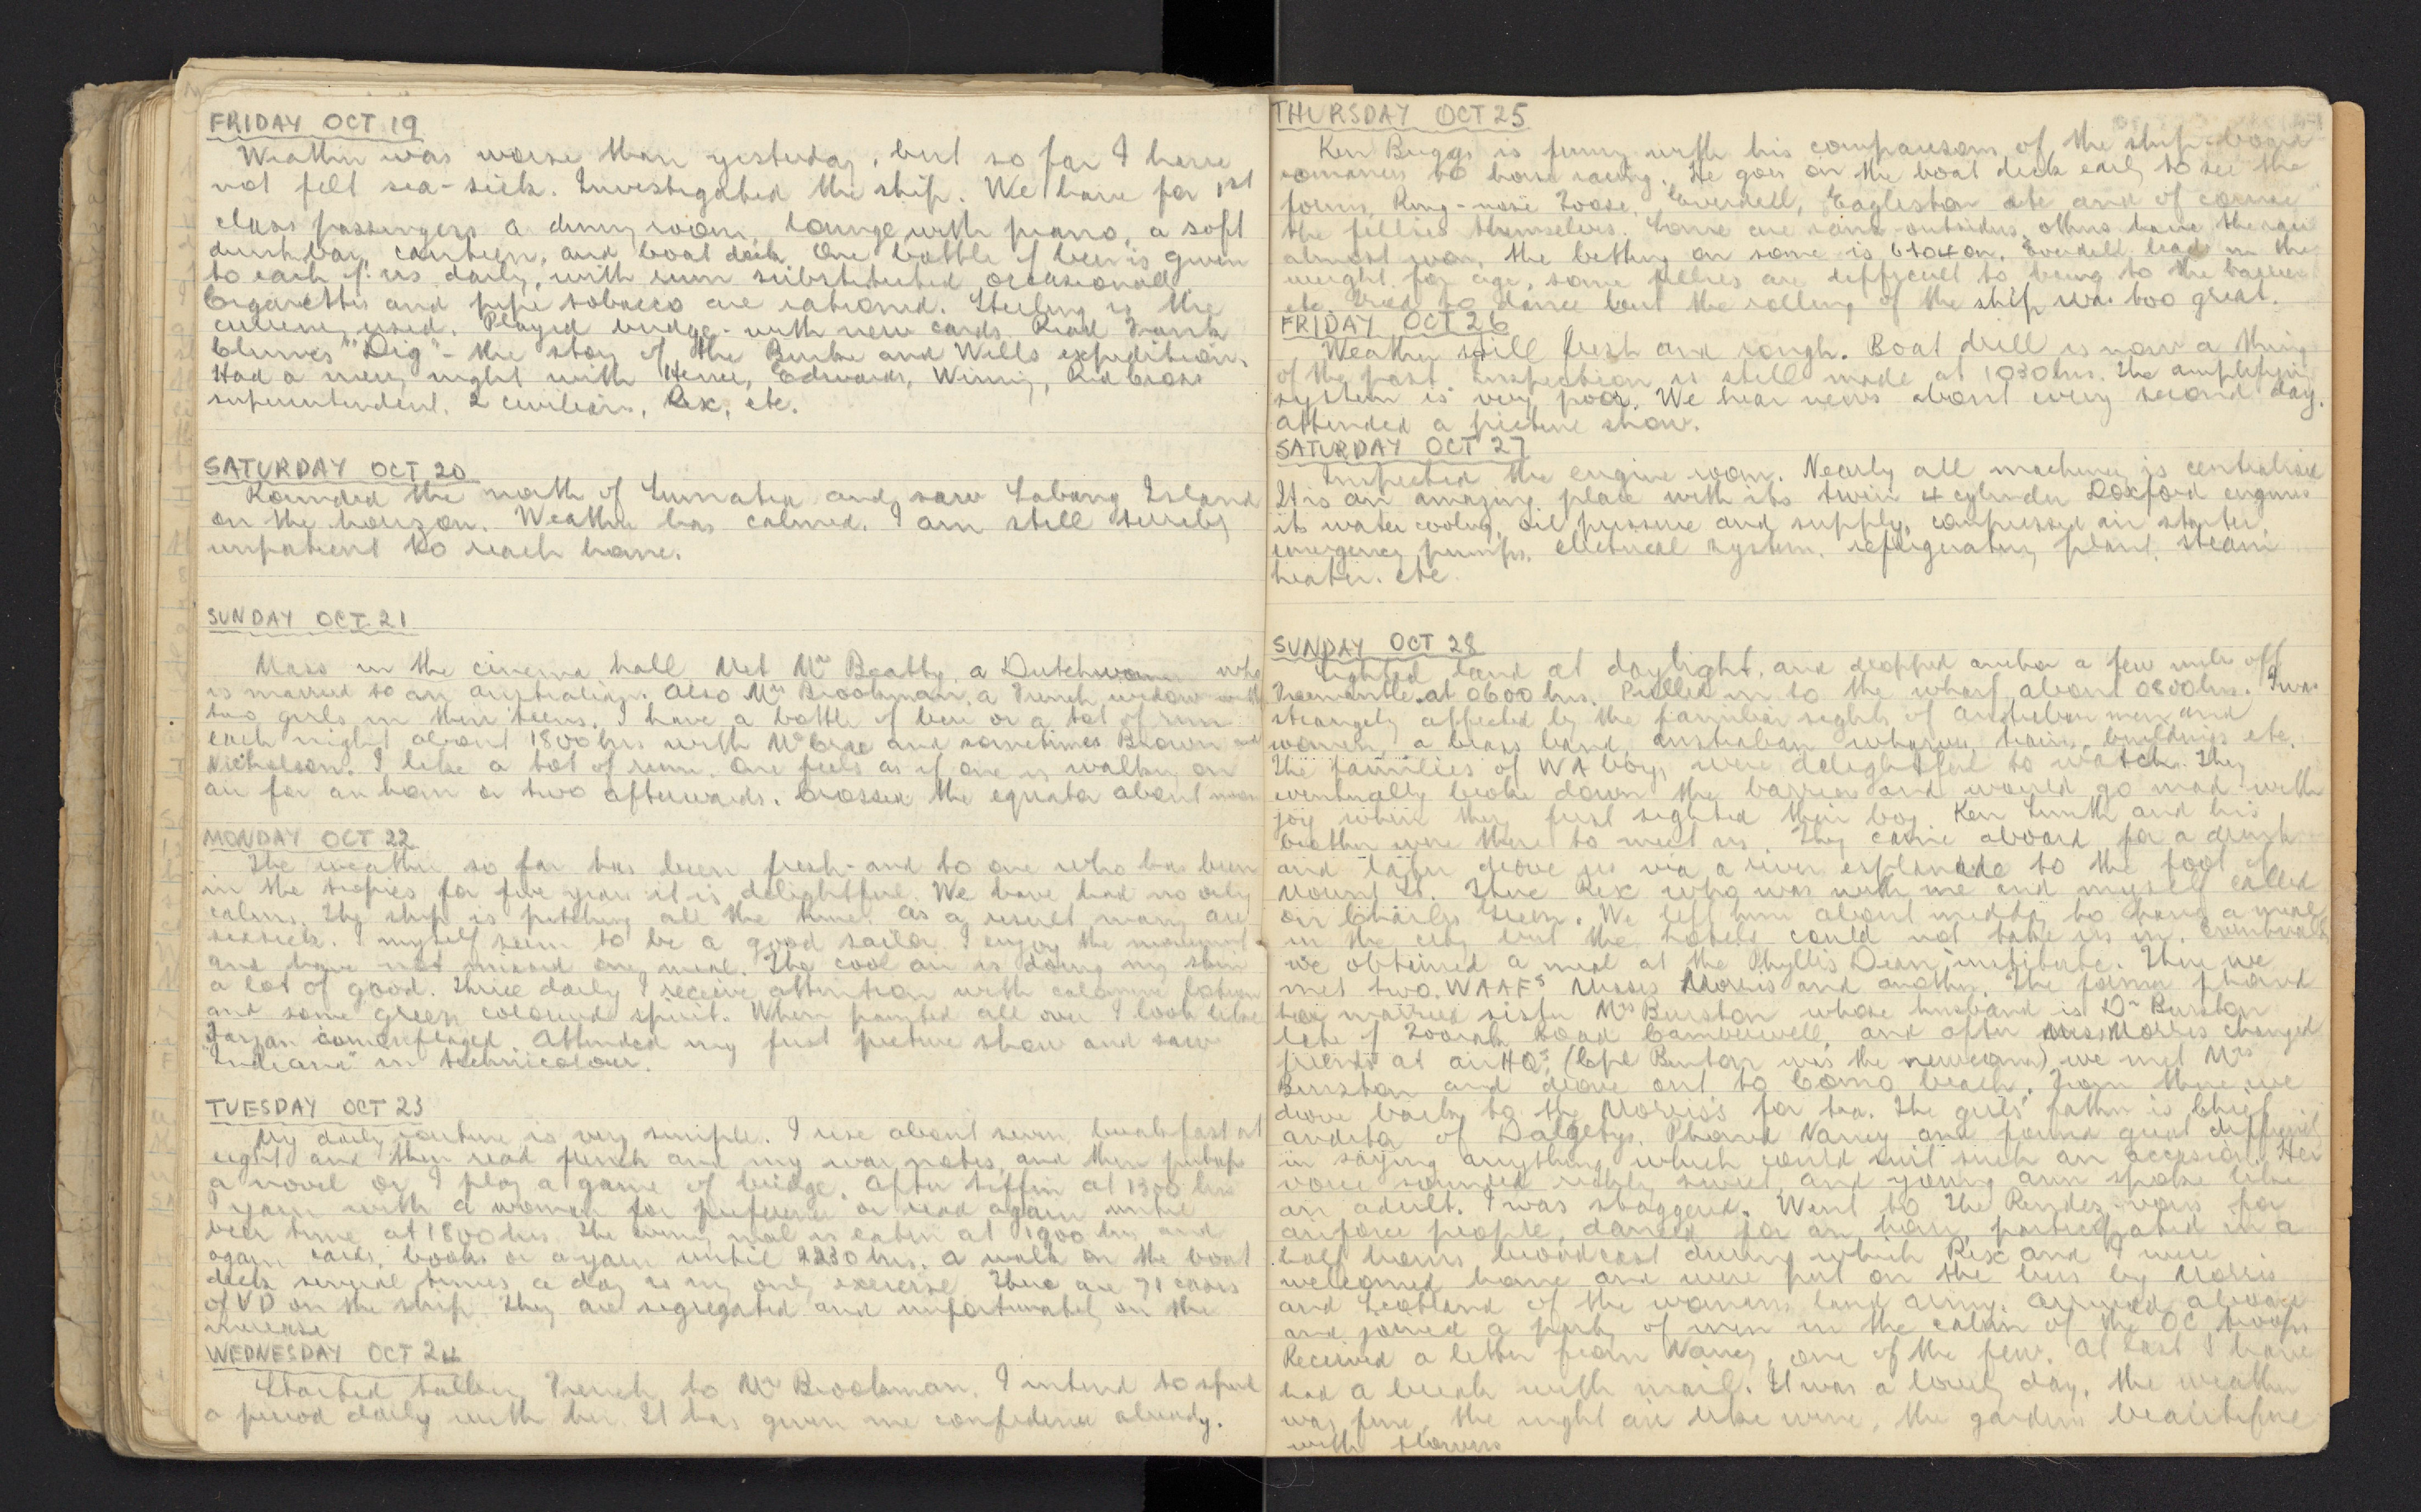 FRIDAY OCT 19
Weather was worse than yesterday, but so far I have
not felt sea-sick. Investigated the ship. We have for 1st
class passengers a dining room, lounge with piano, a soft
drink bar, canteen, and boat deck. One bottle of beer is given
to each of us daily, with rum substituted occasionally
Cigarettes and pipe tobacco are rationed. Sterling is the
currency used. Played bridge - with new cards. Read Frank
Clunes "Dig" - the story of the Burke and Wills expedition.
Had a merry night with Edwards, Winning, Red Cross
superintendent, 2 civilians, Rex, etc.
SATURDAY OCT 20
Rounded the north of Sumatra and saw Sabang Island
on the horizon. Weather has calmed. I am still terribly
impatient to reach home.
SUNDAY OCT 21
Mass in the cinema hall. Met Mrs Beatty, a Dutchwoman who
is married to an Australian. Also Mrs Brookman, a French widow with
two girls in their teens. I have a bottle of beer or a tot of rum
each night about 1800 hrs with McCrae and sometimes Brown and
Nicholson. I like a tot of rum. One feels as if one is walking on
air for an hour or two afterwards. Crossed the equator about noon
MONDAY OCT 22
The weather so far has been fresh - and to one who has been
in the tropics for five years it is delightful. We have had no oily
calms. The ship is pitching all the time. As a result many are
seasick. I myself seem to be a good sailor. I enjoy the movement
and have not missed one meal. The cool air is doing my skin
a lot of good. Thrice daily I receive attention with calamine lotion
and some green coloured spirit. When painted all over I look like
Tarzan camouflaged. Attended my first picture show and saw
"Indiana" in technicolour.
TUESDAY OCT 23
My daily routine is very simple. I rise about seven, breakfast at
eight and then read French and my war notes, and then perhaps
a novel or I play a game of bridge. After tiffin at 1300 hrs
I yarn with a woman for preference or read again until
beer time at 1800 hrs. The evening meal is eaten at 1900 hrs and
again cards, books or a yarn until 2230 hrs. A walk on the boat
deck several times a day is my only exercise. There are 71 cases
of VD on the ship. They are segregated and unfortunately on the
increase
WEDNESDAY OCT 24
Started talking French to Mrs Brookman. I intend to spend
a period daily with her. It has given me confidence already.
THURSDAY OCT 25
Ken Buggs is funny with his comparisons of the ship-board
romances to horse racing. He goes on the boat deck early to see the
forms, Ring-nose Everdell, Eagleston etc and of course
the fillies themselves. Some are rank-outsiders, others have the race
almost won, the betting on some is 6 to 4 on. Everdell leads in the
weight for age, some fillies are difficult to bring to the barrier
etc. Tried to dance but the rolling of the ship was too great.
FRIDAY OCT 26
Weather still fresh and rough. Boat drill is now a thing
of the past. Inspection is still made at 1030 hrs. The amplifying
system is very poor. We hear news about every second day.
Attended a picture show.
SATURDAY OCT 27
Inspected the engine room. Nearly all machinery is centralised
It is an amazing place with its twin 4 cylinder Doxford engines
its water cooling, oil pressure and supply, compressed air starter,
emergency pumps, electrical system, refrigerating plant, steam
heater. etc.
SUNDAY OCT 28
Sighted land at daylight, and dropped anchor a few miles off
Fremantle at 0600 hrs. Pulled in to the wharf about 0800 hrs. I was
strangely affected by the familiar sights of Australian men and
women, a brass band, Australian wharves, trains, buildings etc.
The families of WA boys were delightful to watch. They
eventually broke down the barrier and would go mad with
joy when they first sighted their boy. Ken Smith and his
brother were there to meet us. They came aboard for a drink
and later drove us via a river esplanade to the foot of
Mount St. There Rex who was with me and myself called
on Charles Green. We left him about midday to have a meal
in the city but the hotels could not take us in. Eventually
we obtained a meal at the Phyllis Dean institute. There we
met two WAAFS Misses Morris and another. The former phoned
her married sister Mrs Burston whose husband is Dr Burston
late of Toorak Road Camberwell, and after Miss Morris changed
friends at air HQs (Cpl Benton was the newcomer) we met Mrs
Burston and drove out to Como beach. From there we
drove back to the Morris's for tea. The girls' father is Chief
auditor of Dalgetys. Phoned Nancy and found great difficulty
in saying anything which would suit such an occasion. Her
voice sounded richly sweet and young Ann spoke like
an adult. I was staggered. Went to the Rendez-vous for
airforce people, danced for an hour, participated in a
half hours broadcast during which Rex and I were
welcomed home and were put on the bus by Morris
and Scotland of the womans land army. Arrived aboard
and joined a party of men in the cabin of the OC troops
Received a letter from Nancy, one of the few. At last I have
had a break with mail. It was a lovely day, the weather
was fine, the night air like wine, the gardens beautiful
with flowers